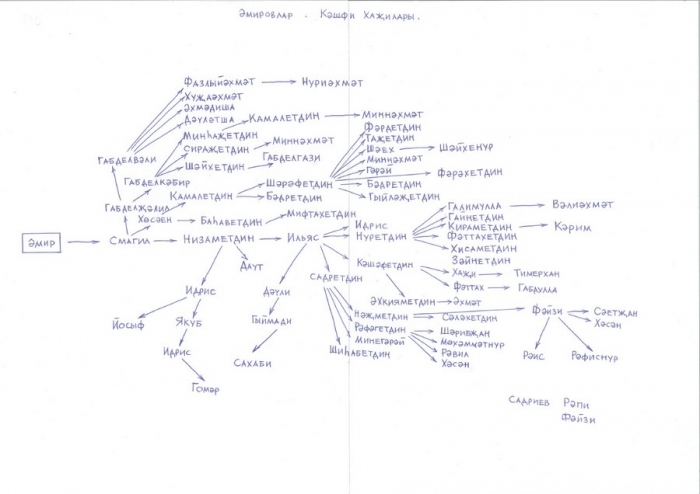 Әмировлар. Кәшфи Хаҗилары.
Фазлыйәхмәт Нуриәхмәт
Хуҗаәхмәт
Әхмәдиша
Дәүләтша Камалетдин Миннәхмәт
Фәрдетдин
Минһаҗетдин Таҗетдин
Сираҗетдин Миннәхмәт Шәех Шәйхенур
Габделвәли Шәйхетдин Габделгази Миннәхмәт
Гәрәй
Габделкәбир Шәрәфетдин Бәдретдин Фәрәхетдин
Камалетдин Бәдретдин Гыйләҗетдин
Габделҗәлил
Хөсәен Баһабетдин Мифтахетдин
Идрис Галимулла Вәлиәхмәт
Гайнетдин
Әмир Смагил Низаметдин Ильяс Нуретдин Кираметдин Кәрим
Фәттахетдин
Хисаметдин
Зәйнетдин
Даут Садретдин Кәшәфетдин Хаҗи Тимерхан
Фәттах Габдулла
Идрис Дәүли Әхкияметдин Әхмәт
Нәҗметдин Сәләхетдин Фәйзи Сәетҗан
Хәсән
Йосыф Якуб Гыймади Рәфәгетдин Шәрибҗан
Минегәрәй Мөхәммәтнур
Шиһабетдин Рәвил
Хәсән
Рәис Рәфиснур
Идрис Сахаби
Гомәр
Садриев Рәпи
Фәйзи